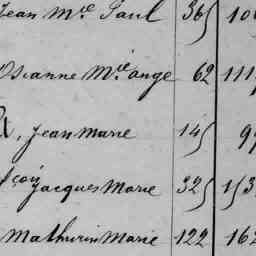 Jean Mie Paul 365 10
Osianne Mie ange 62 111
Jean Marie 145 9
Jacques Marie 325 153
Mathurin Marie 122 162